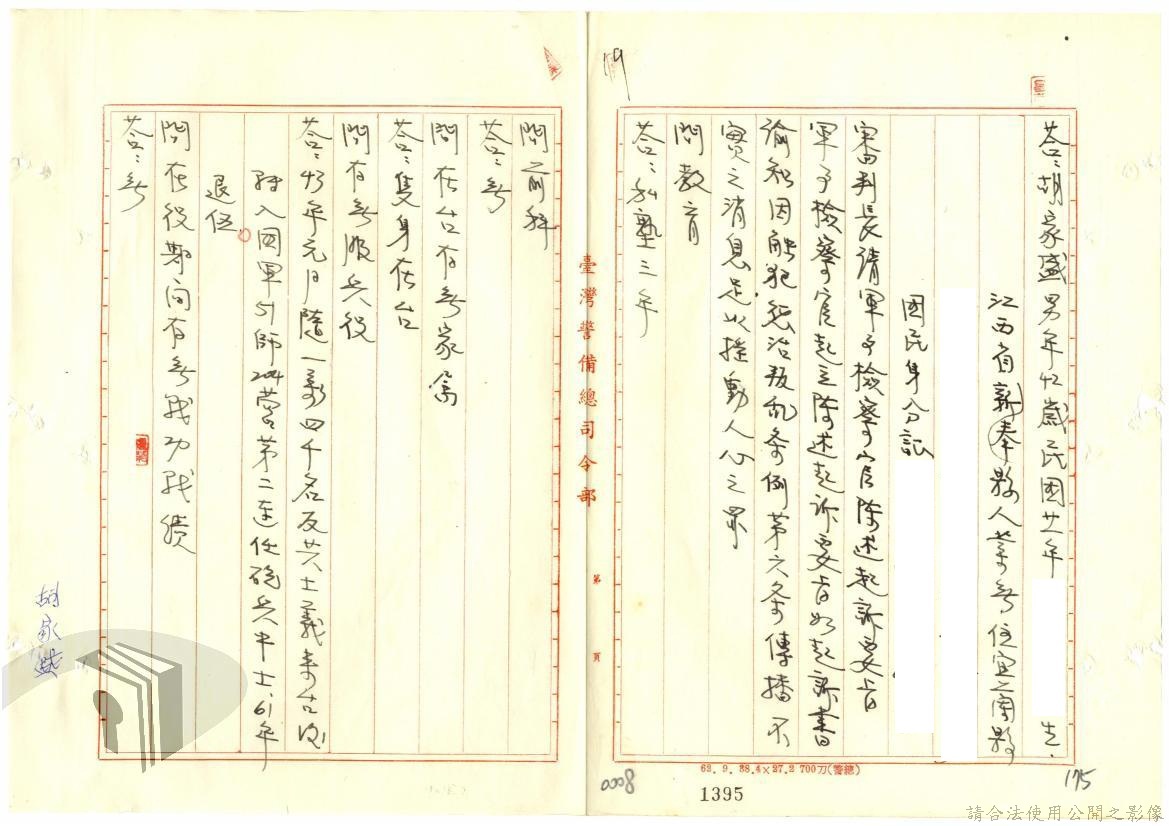 答：胡家盛男年42歲民國廿一年 生
江西省新奉縣人業無住宜蘭縣
國民身分証
審判長請軍事檢察官陳述起訴要旨
軍事檢察官起立陳述起訴要旨如起訴書
諭知因觸犯懲治叛乱条例第六条傳播不
實之消息足以搖動人心之罪
問教育
答：私塾三年
問前科
答：無
問在台有無家屬
答：隻身在台
問有無服兵役
答：43年元月隨一萬四千名反共士義來台後
轉入國軍51師204營第二連任砲兵中士.61年
退伍。
問在役期間有無战功战績
答：無
臺灣警備總司令部
第 頁
62. 9. 38.4×27.2 700刀(警總)
0008
1395
175
胡家盛
請合法使用公開之影像